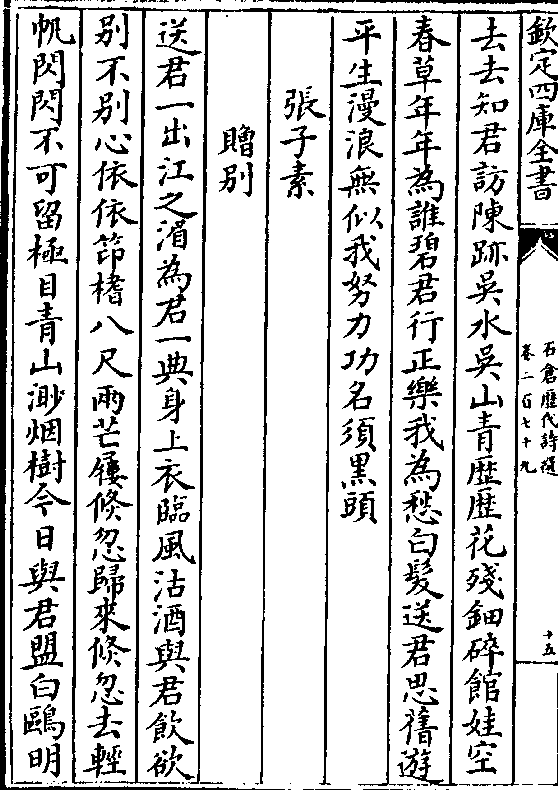 欽定四庫全書
石倉歷代詩選
卷二百七十九
十五
去去知君訪陳跡吳水吳山青歴歴花殘鈿碎館娃空
春草年年為誰碧君行正樂我為愁白髮送君思舊遊
平生漫浪無似我努力功名須黒頭
張子素
贈别
送君一出江之湄為君一典身上衣臨風沽酒與君飲欲
别不别心依依笻檣八尺兩芒屨倐忽歸來倐忽去輕
帆閃閃不可留極目青山渺烟樹今日與君盟白鷗明